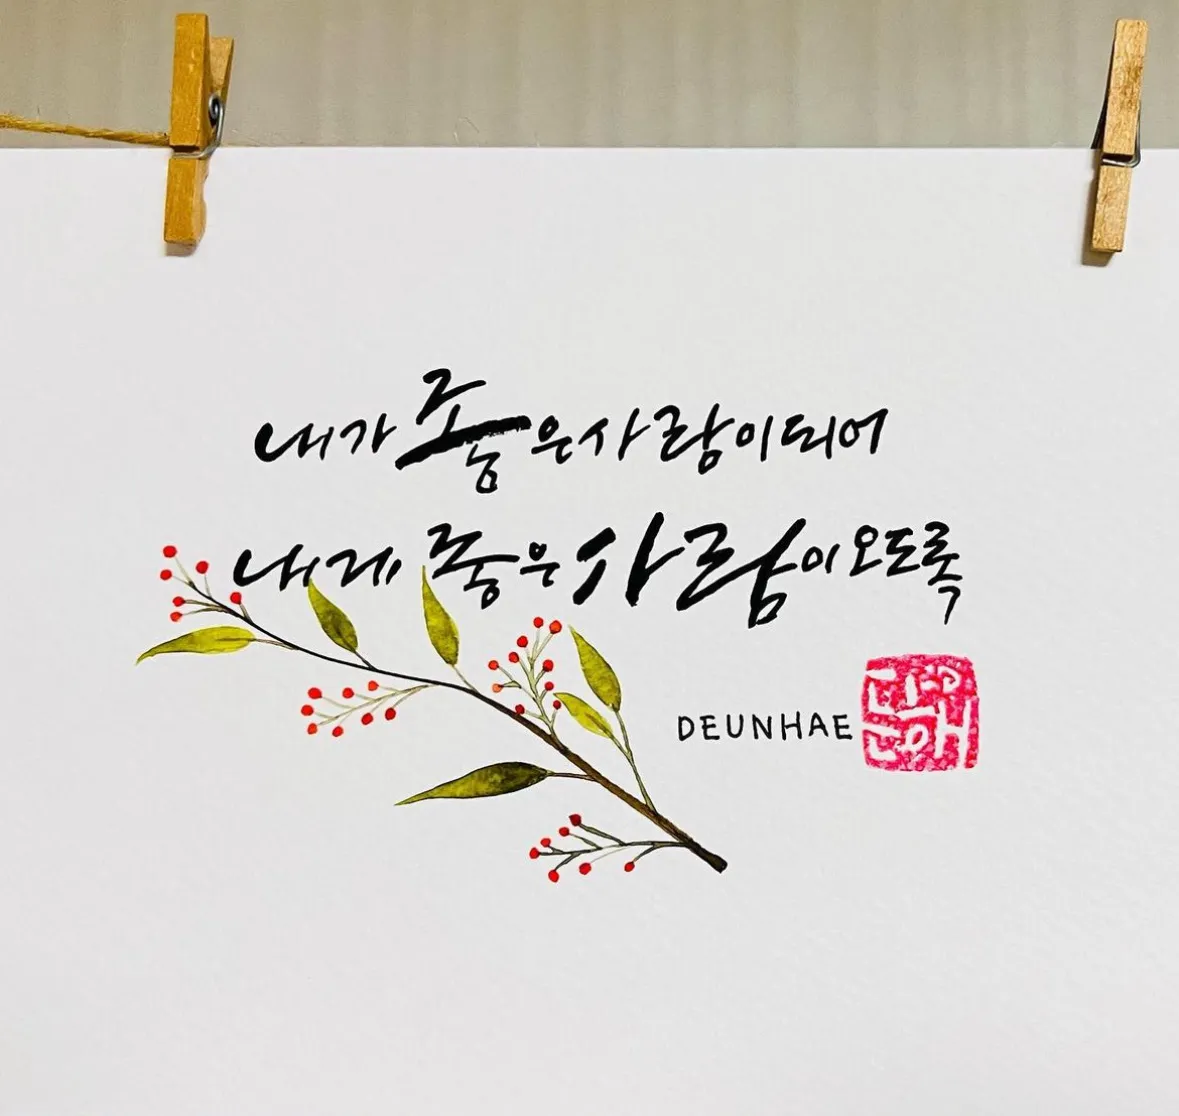 내가 좋은 사람이 되어
내게 좋은 사람이 오도록
DEUNHAE